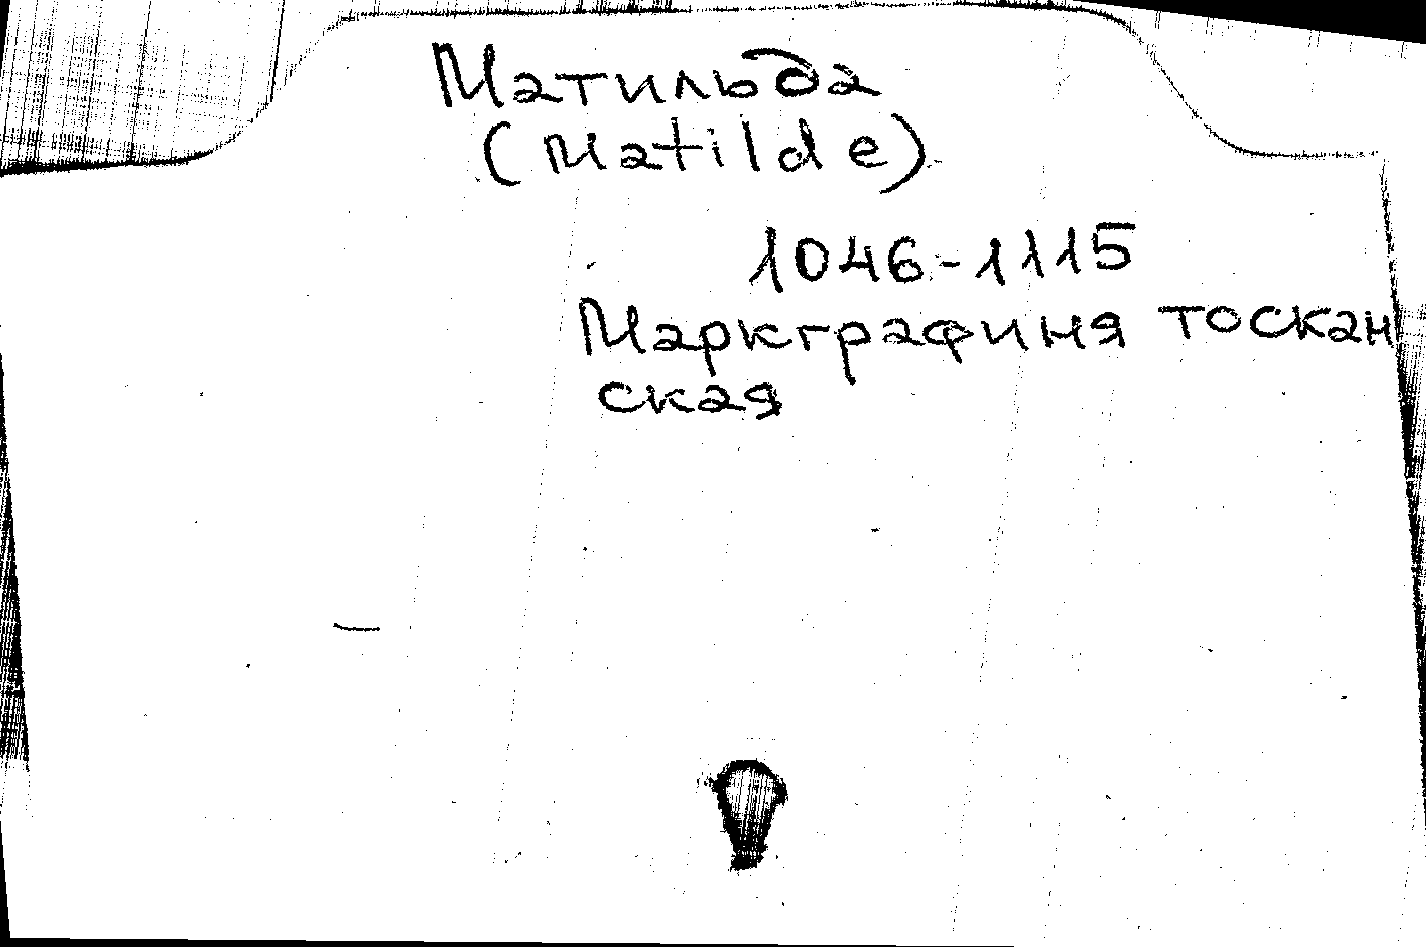 Матильда
(Matilde)
1046-1115
Маркграфиня тоскан
ская